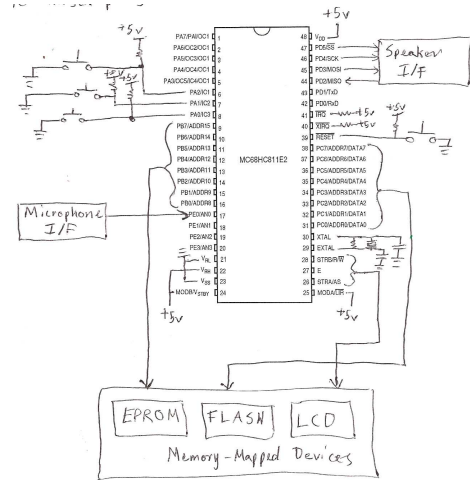 +5v
+5v
PA7/PAI/OC1 1
PA6/OC2/OC1 2
PA5/OC3/OC1 3
PA4/OC4/OC1 4
PA3/OC5/IC4/OC1 5
PA2/IC1 6
PA1/IC2 7
PA0/IC3 8
PB7/ADDR15 9
PB6/ADDR14 10
PB5/ADDR13 11
PB4/ADDR12 12
PB3/ADDR11 13
PB2/ADDR10 14
PB1/ADDR9 15
PB0/ADDR8 16
PE0/AN0 17
PE1/AN1 18
PE2/AN2 19
PE3/AN3 20
VRL 21
VRH 22
VSS 23
MODB/VSTBY 24
MC68HC811E2
48 VDD
47 PD5/SS
46 PD4/SCK
45 PD3/MOSI
44 PD2/MISO
43 PD1/TxD
42 PD0/RxD
41 IRQ +5v
40 XIRQ +5v
39 RESET
38 PC7/ADDR7/DATA7
37 PC6/ADDR6/DATA6
36 PC5/ADDR5/DATA5
35 PC4/ADDR4/DATA4
34 PC3/ADDR3/DATA3
33 PC2/ADDR2/DATA2
32 PC1/ADDR1/DATA1
31 PC0/ADDR0/DATA0
30 XTAL
29 EXTAL
28 STRB/R/W
27 E
26 STRA/AS
25 MODA/LIR
Speaker
I/F
+5v
+5v
+5v
Microphone
I/F
+5v
+5v
EPROM
FLASH
LCD
Memory-Mapped Devices